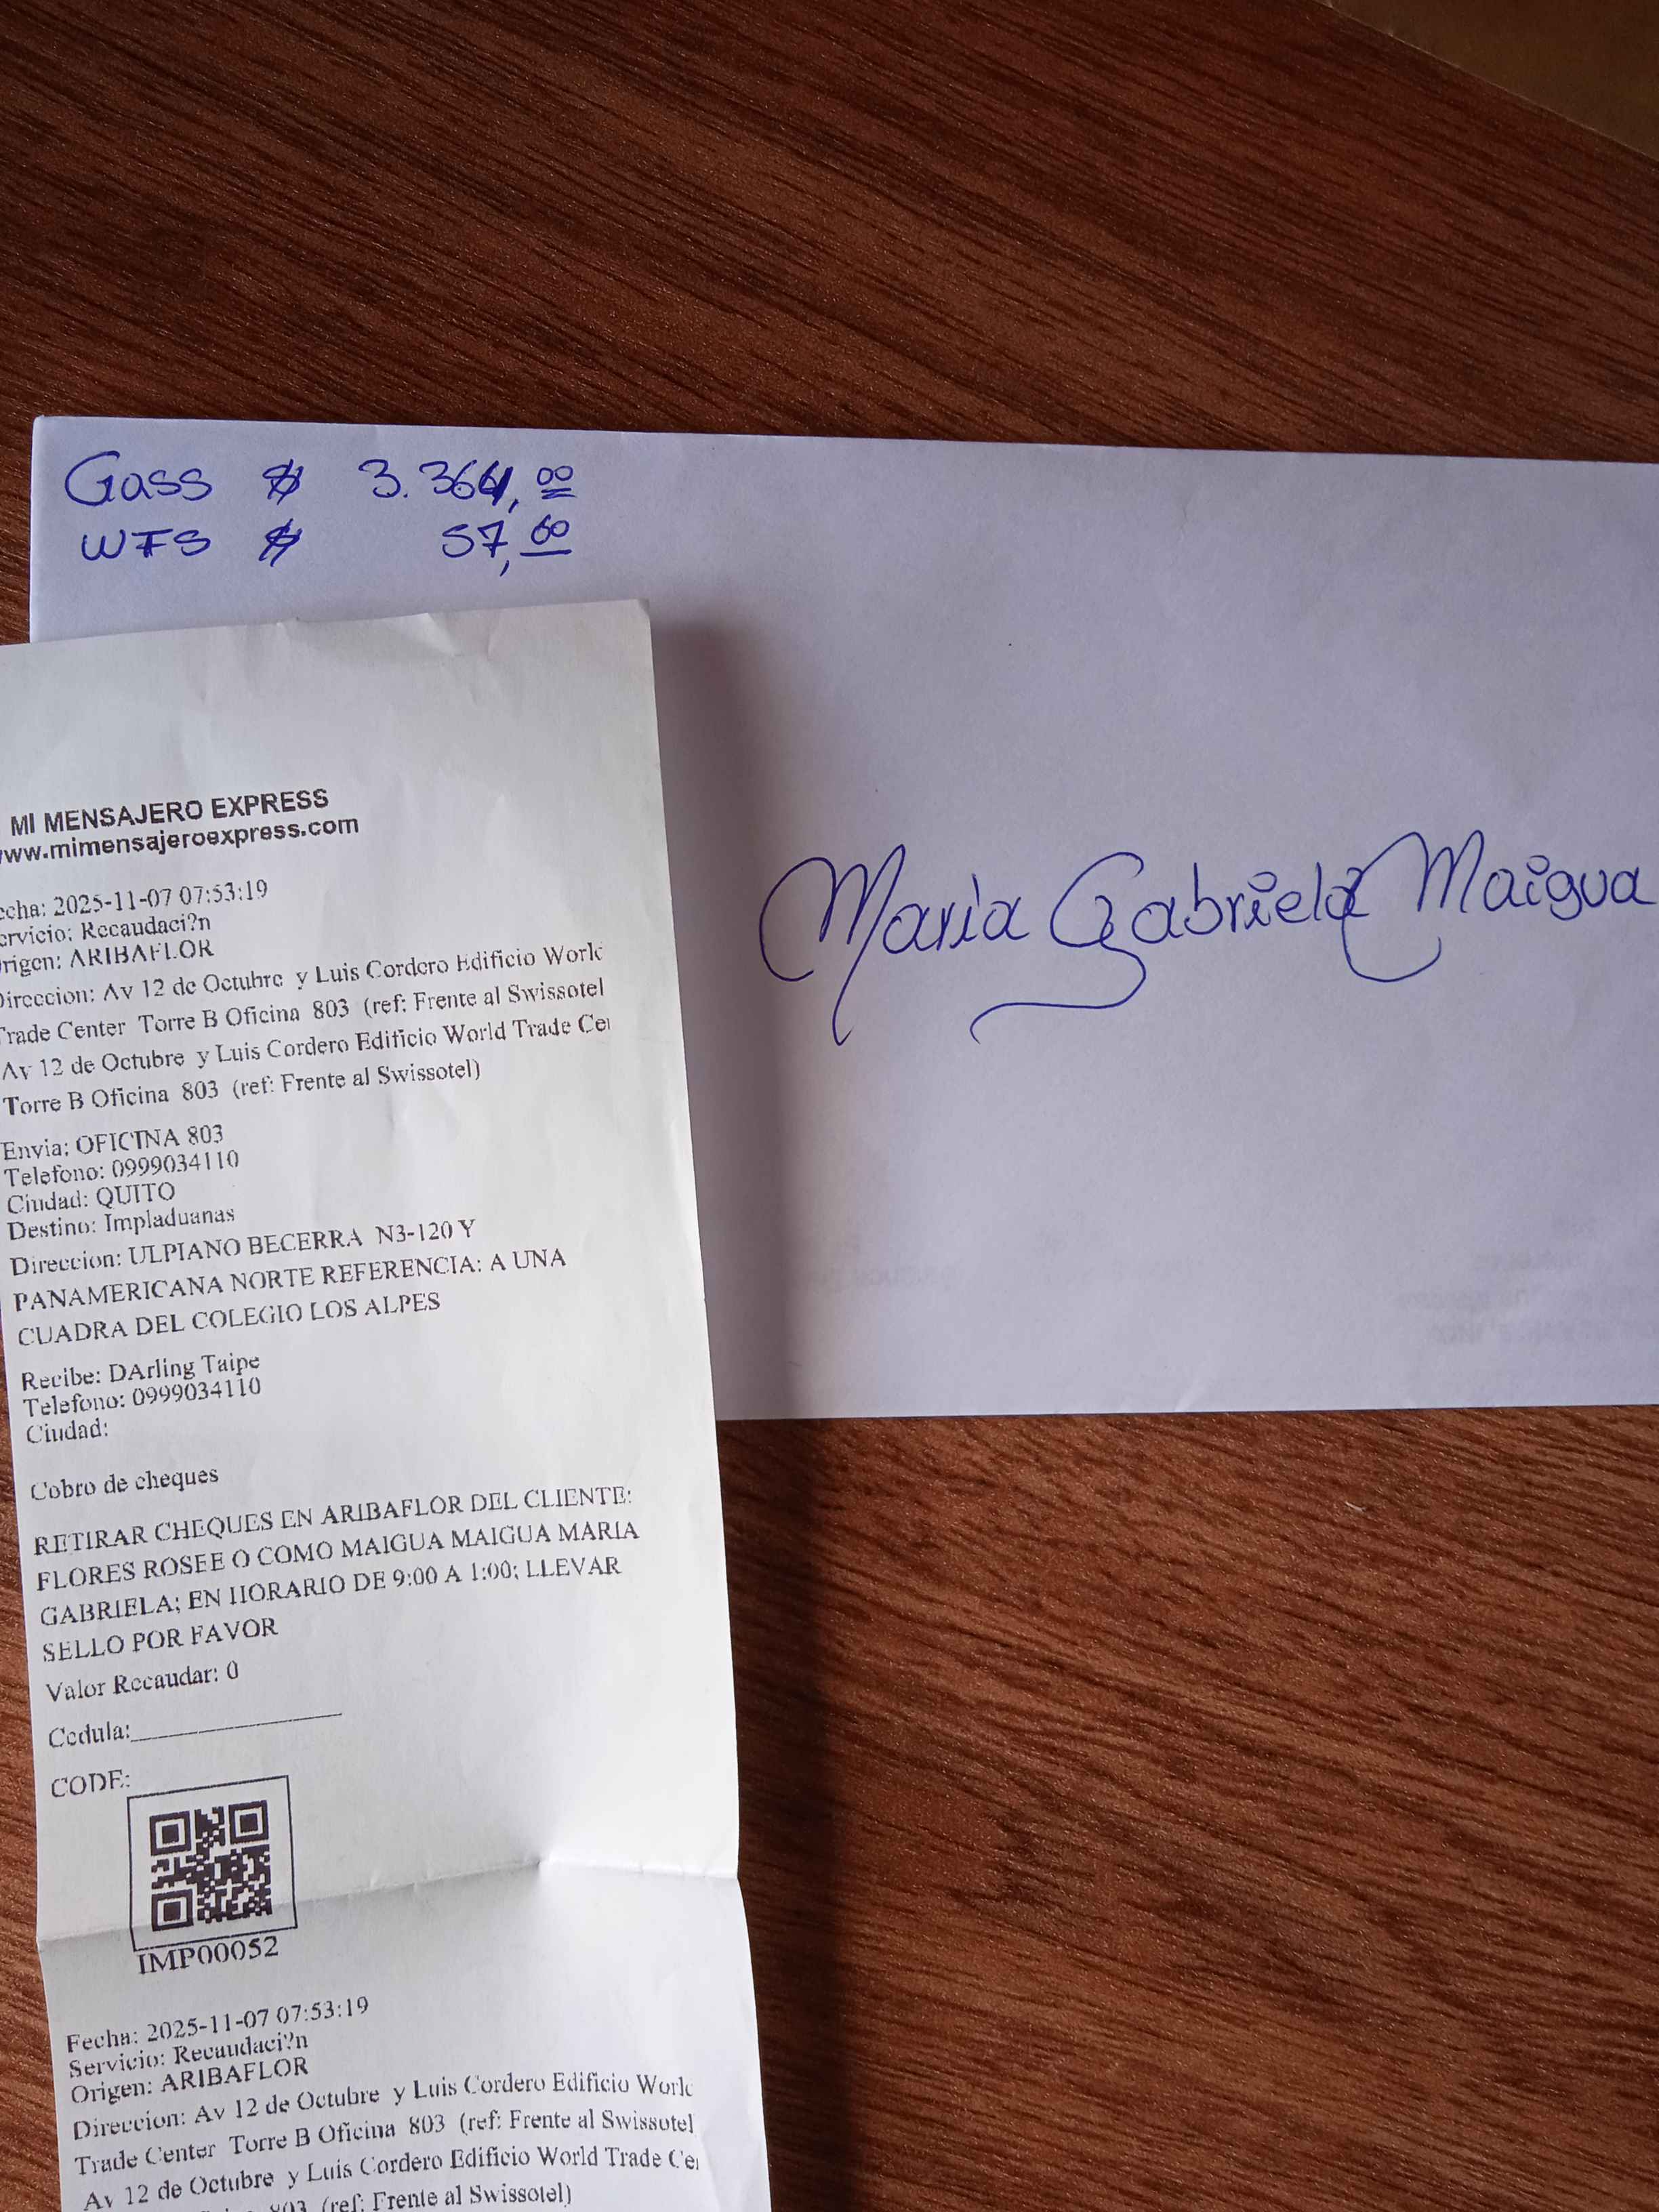 Gass $ 3.364,00
WFS $ 57,60
Maria Gabriela Maigua
MI MENSAJERO EXPRESS
www.mimensajeroexpress.com
echa: 2025-11-07 07:53:19
ervicio: Recaudaci?n
rigen: ARIBAFLOR
Direccion: Av 12 de Octubre y Luis Cordero Edificio World
Trade Center Torre B Oficina 803 (ref: Frente al Swissotel
Av 12 de Octubre y Luis Cordero Edificio World Trade Cen
Torre B Oficina 803 (ref: Frente al Swissotel)
Envia: OFICINA 803
Telefono: 0999034110
Ciudad: QUITO
Destino: Impladuanas
Direccion: ULPIANO BECERRA N3-120 Y
PANAMERICANA NORTE REFERENCIA: A UNA
CUADRA DEL COLEGIO LOS ALPES
Recibe: DArling Taipe
Telefono: 0999034110
Ciudad:
Cobro de cheques
RETIRAR CHEQUES EN ARIBAFLOR DEL CLIENTE:
FLORES ROSEE O COMO MAIGUA MAIGUA MARIA
GABRIELA; EN HORARIO DE 9:00 A 1:00; LLEVAR
SELLO POR FAVOR
Valor Recaudar: 0
Cedula:
CODE:
IMP00052
Fecha: 2025-11-07 07:53:19
Servicio: Recaudaci?n
Origen: ARIBAFLOR
Direccion: Av 12 de Octubre y Luis Cordero Edificio World
Trade Center Torre B Oficina 803 (ref: Frente al Swissotel
Av 12 de Octubre y Luis Cordero Edificio World Trade Cen
803 (ref: Frente al Swissotel)